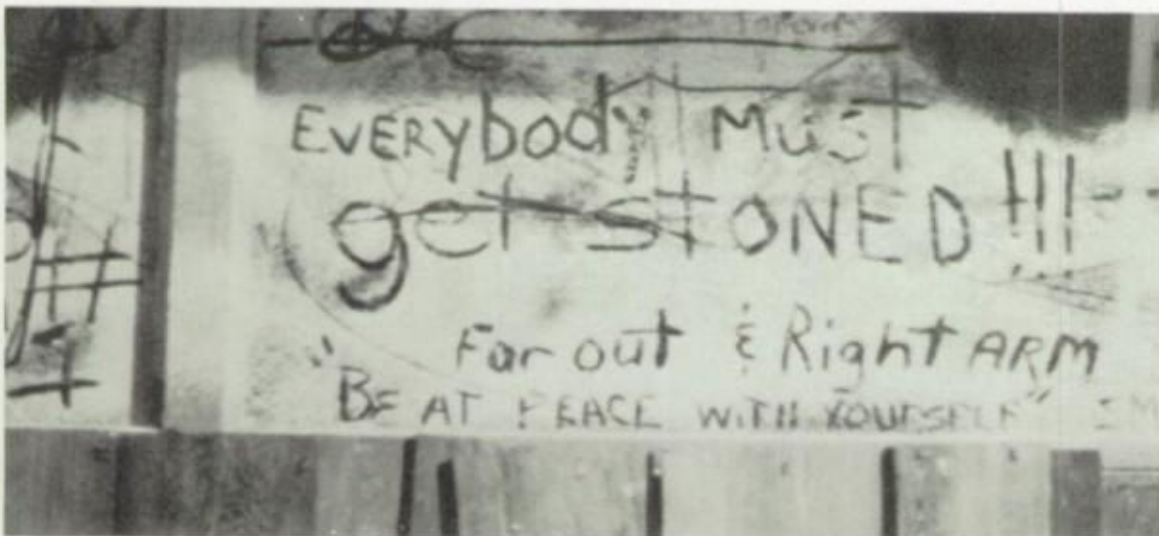 EVERYbody Must
get STONED!!!
Far out & Right ARM
"BE AT PEACE WITH YOURSELF"